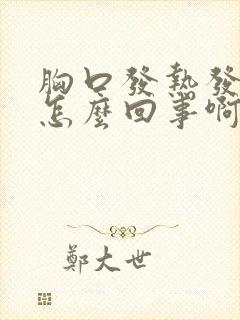 胸口發熱發
怎麼回事啊
鄭大世